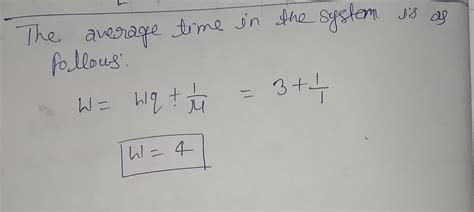 The average time in the system is as
follows:
W = Wq + 1/μ = 3 + 1/1
W = 4